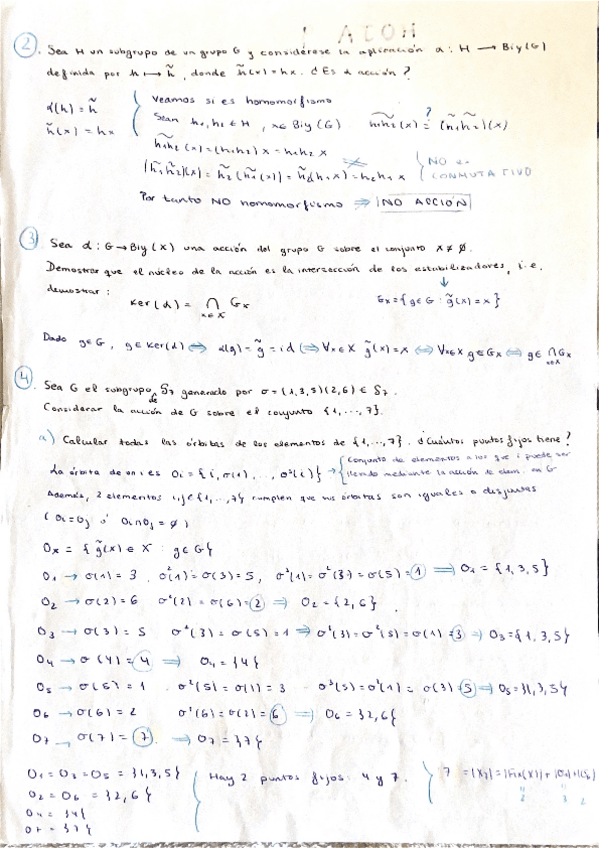 HOJA 1
2. Sea H un subgrupo de un grupo G y considérese la aplicación α: H → Biy(G)
definida por h ↦ h̃, donde h̃(x) = hx. ¿Es α acción?
α(h) = h̃
h̃(x) = hx
Veamos si es homomorfismo
Sean h₁, h₂ ∈ H, x ∈ Biy(G) h̃₁h₂(x) ?= (h̃₁h̃₂)(x)
h̃₁h₂(x) = (h₁h₂)x = h₁h₂x
(h̃₁h̃₂)(x) = h̃₂(h̃₁(x)) = h̃₂(h₁x) = h₂h₁x
≠
NO es
CONMUTATIVO
Por tanto NO homomorfismo ⟹ NO ACCIÓN
3. Sea α: G → Biy(X) una acción del grupo G sobre el conjunto X ≠ ∅.
Demostrar que el núcleo de la acción es la intersección de los estabilizadores, i.e.
demostrar: ker(α) = ∩ Gx
x∈X
Gx = {g ∈ G : g̃(x) = x}
Dado g∈G, g∈Ker(α) ⟺ α(g) = g̃ = id ⟺ ∀x∈X g̃(x) = x ⟺ ∀x∈X g∈Gx ⟺ g∈ ∩ Gx
x∈X
4. Sea G el subgrupo de S₇ generado por σ = (1,3,5)(2,6) ∈ S₇.
Considerar la acción de G sobre el conjunto {1,...,7}.
a) Calcular todas las órbitas de los elementos de {1,...,7}. ¿Cuántos puntos fijos tiene?
La órbita de un i es Oi = {i, σ(1), ..., σˢ(i)} → Conjunto de elementos a los que i puede ser
llevado mediante la acción de elem. en G
Además, 2 elementos i,j∈{1,...,7} cumplen que sus órbitas son iguales o disjuntas
(Oi = Oj ó Oi∩Oj = ∅)
Ox = {g̃(x) ∈ X : g∈G}
O₁ → σ(1) = 3, σ²(1) = σ(3) = 5, σ³(1) = σ²(3) = σ(5) = 1 ⟹ O₁ = {1,3,5}
O₂ → σ(2) = 6 σ²(2) = σ(6) = 2 ⟹ O₂ = {2,6}
O₃ → σ(3) = 5 σ²(3) = σ(5) = 1 ⟹ σ³(3) = σ²(5) = σ(1) = 3 ⟹ O₃ = {1,3,5}
O₄ → σ(4) = 4 ⟹ O₄ = {4}
O₅ → σ(5) = 1 σ²(5) = σ(1) = 3 σ³(5) = σ²(1) = σ(3) = 5 ⟹ O₅ = {1,3,5}
O₆ → σ(6) = 2 σ²(6) = σ(2) = 6 ⟹ O₆ = {2,6}
O₇ → σ(7) = 7 ⟹ O₇ = {7}
O₁ = O₃ = O₅ = {1,3,5}
O₂ = O₆ = {2,6}
O₄ = {4}
O₇ = {7}
Hay 2 puntos fijos: 4 y 7.
7 = |X₇| = |Fix(X)| + |O₁| + |O₂|
2 3 2